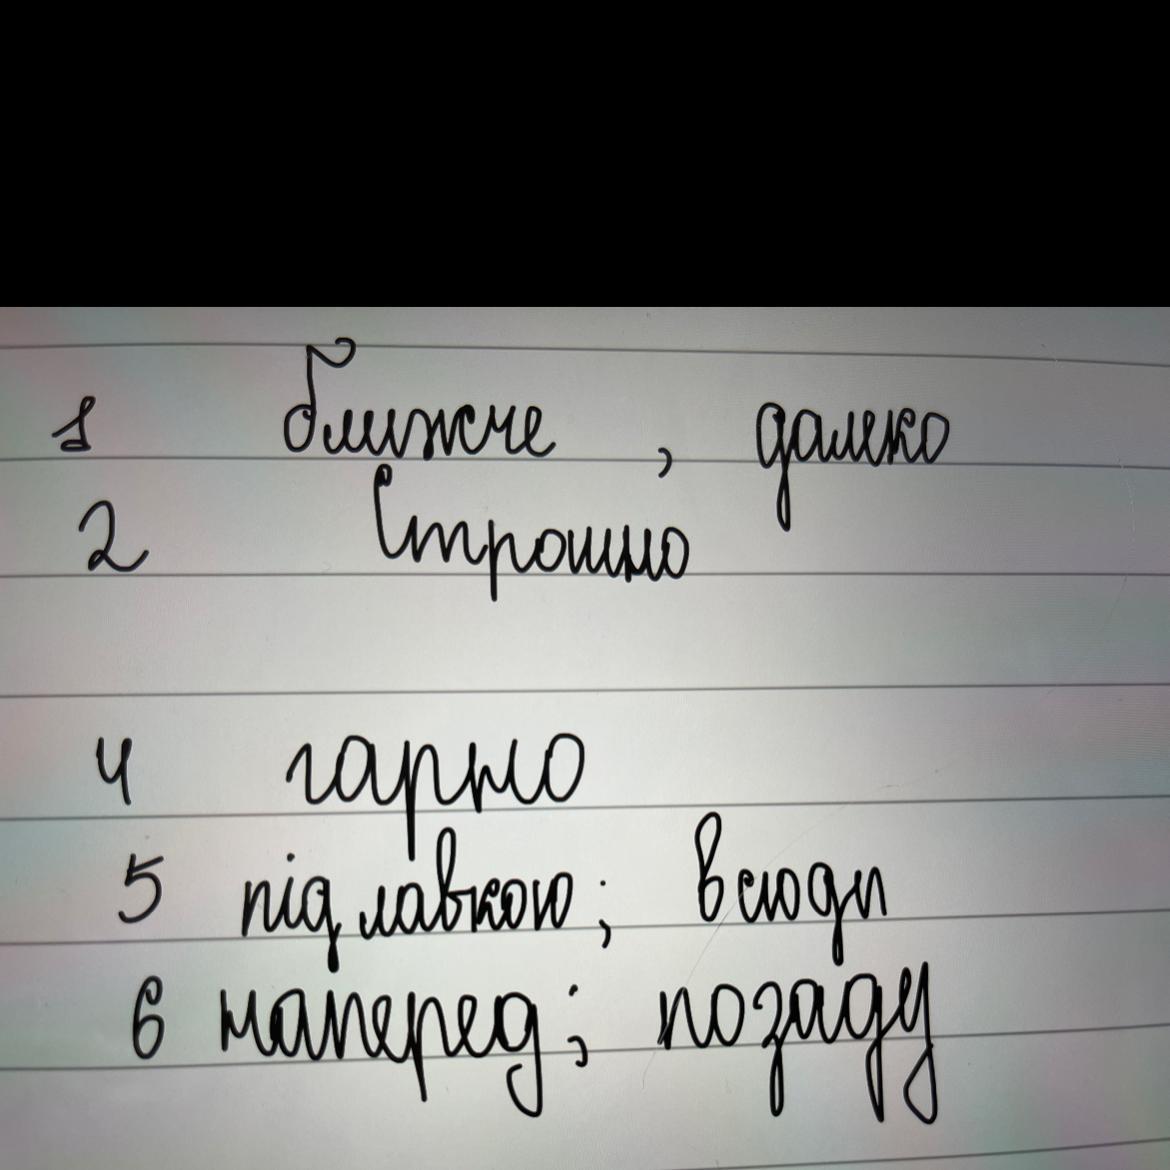 1 ближче , далеко
2 Строшно
4 гарно
5 під лавкою; всюди
6 наперед; позаду